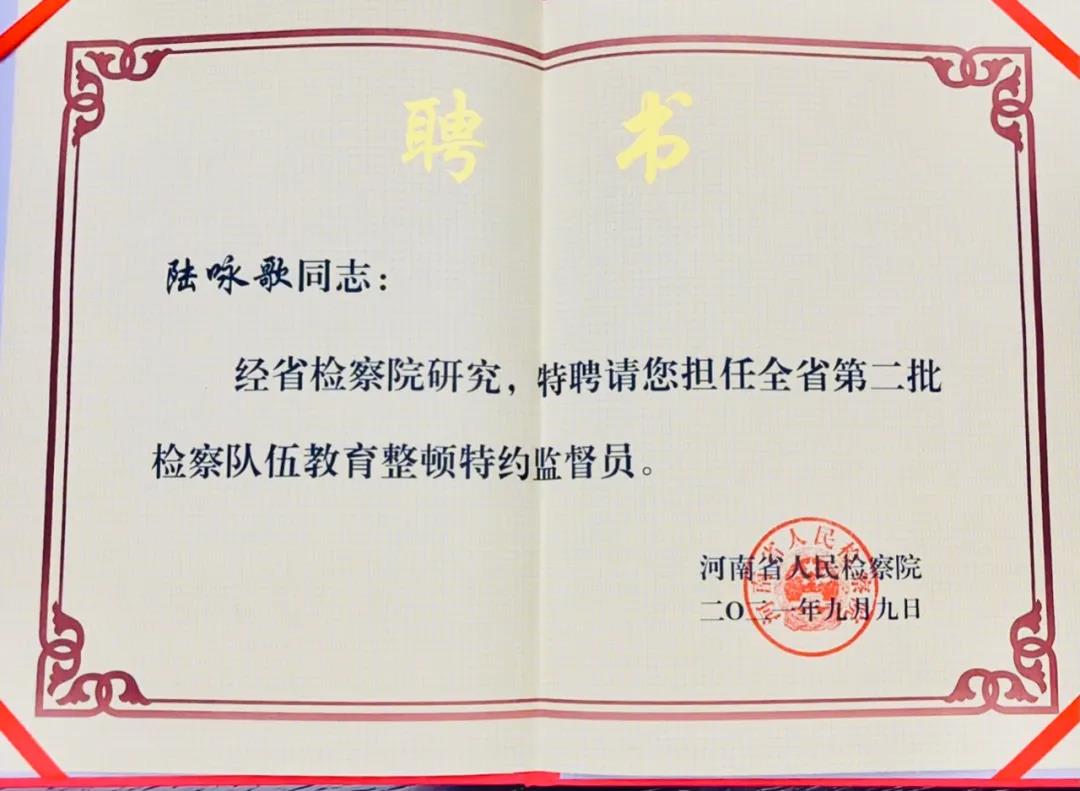 聘书
陆咏歌同志：
经省检察院研究，特聘请您担任全省第二批
检察队伍教育整顿特约监督员。
河南省人民检察院
二〇二一年九月九日
河南省人民检察院